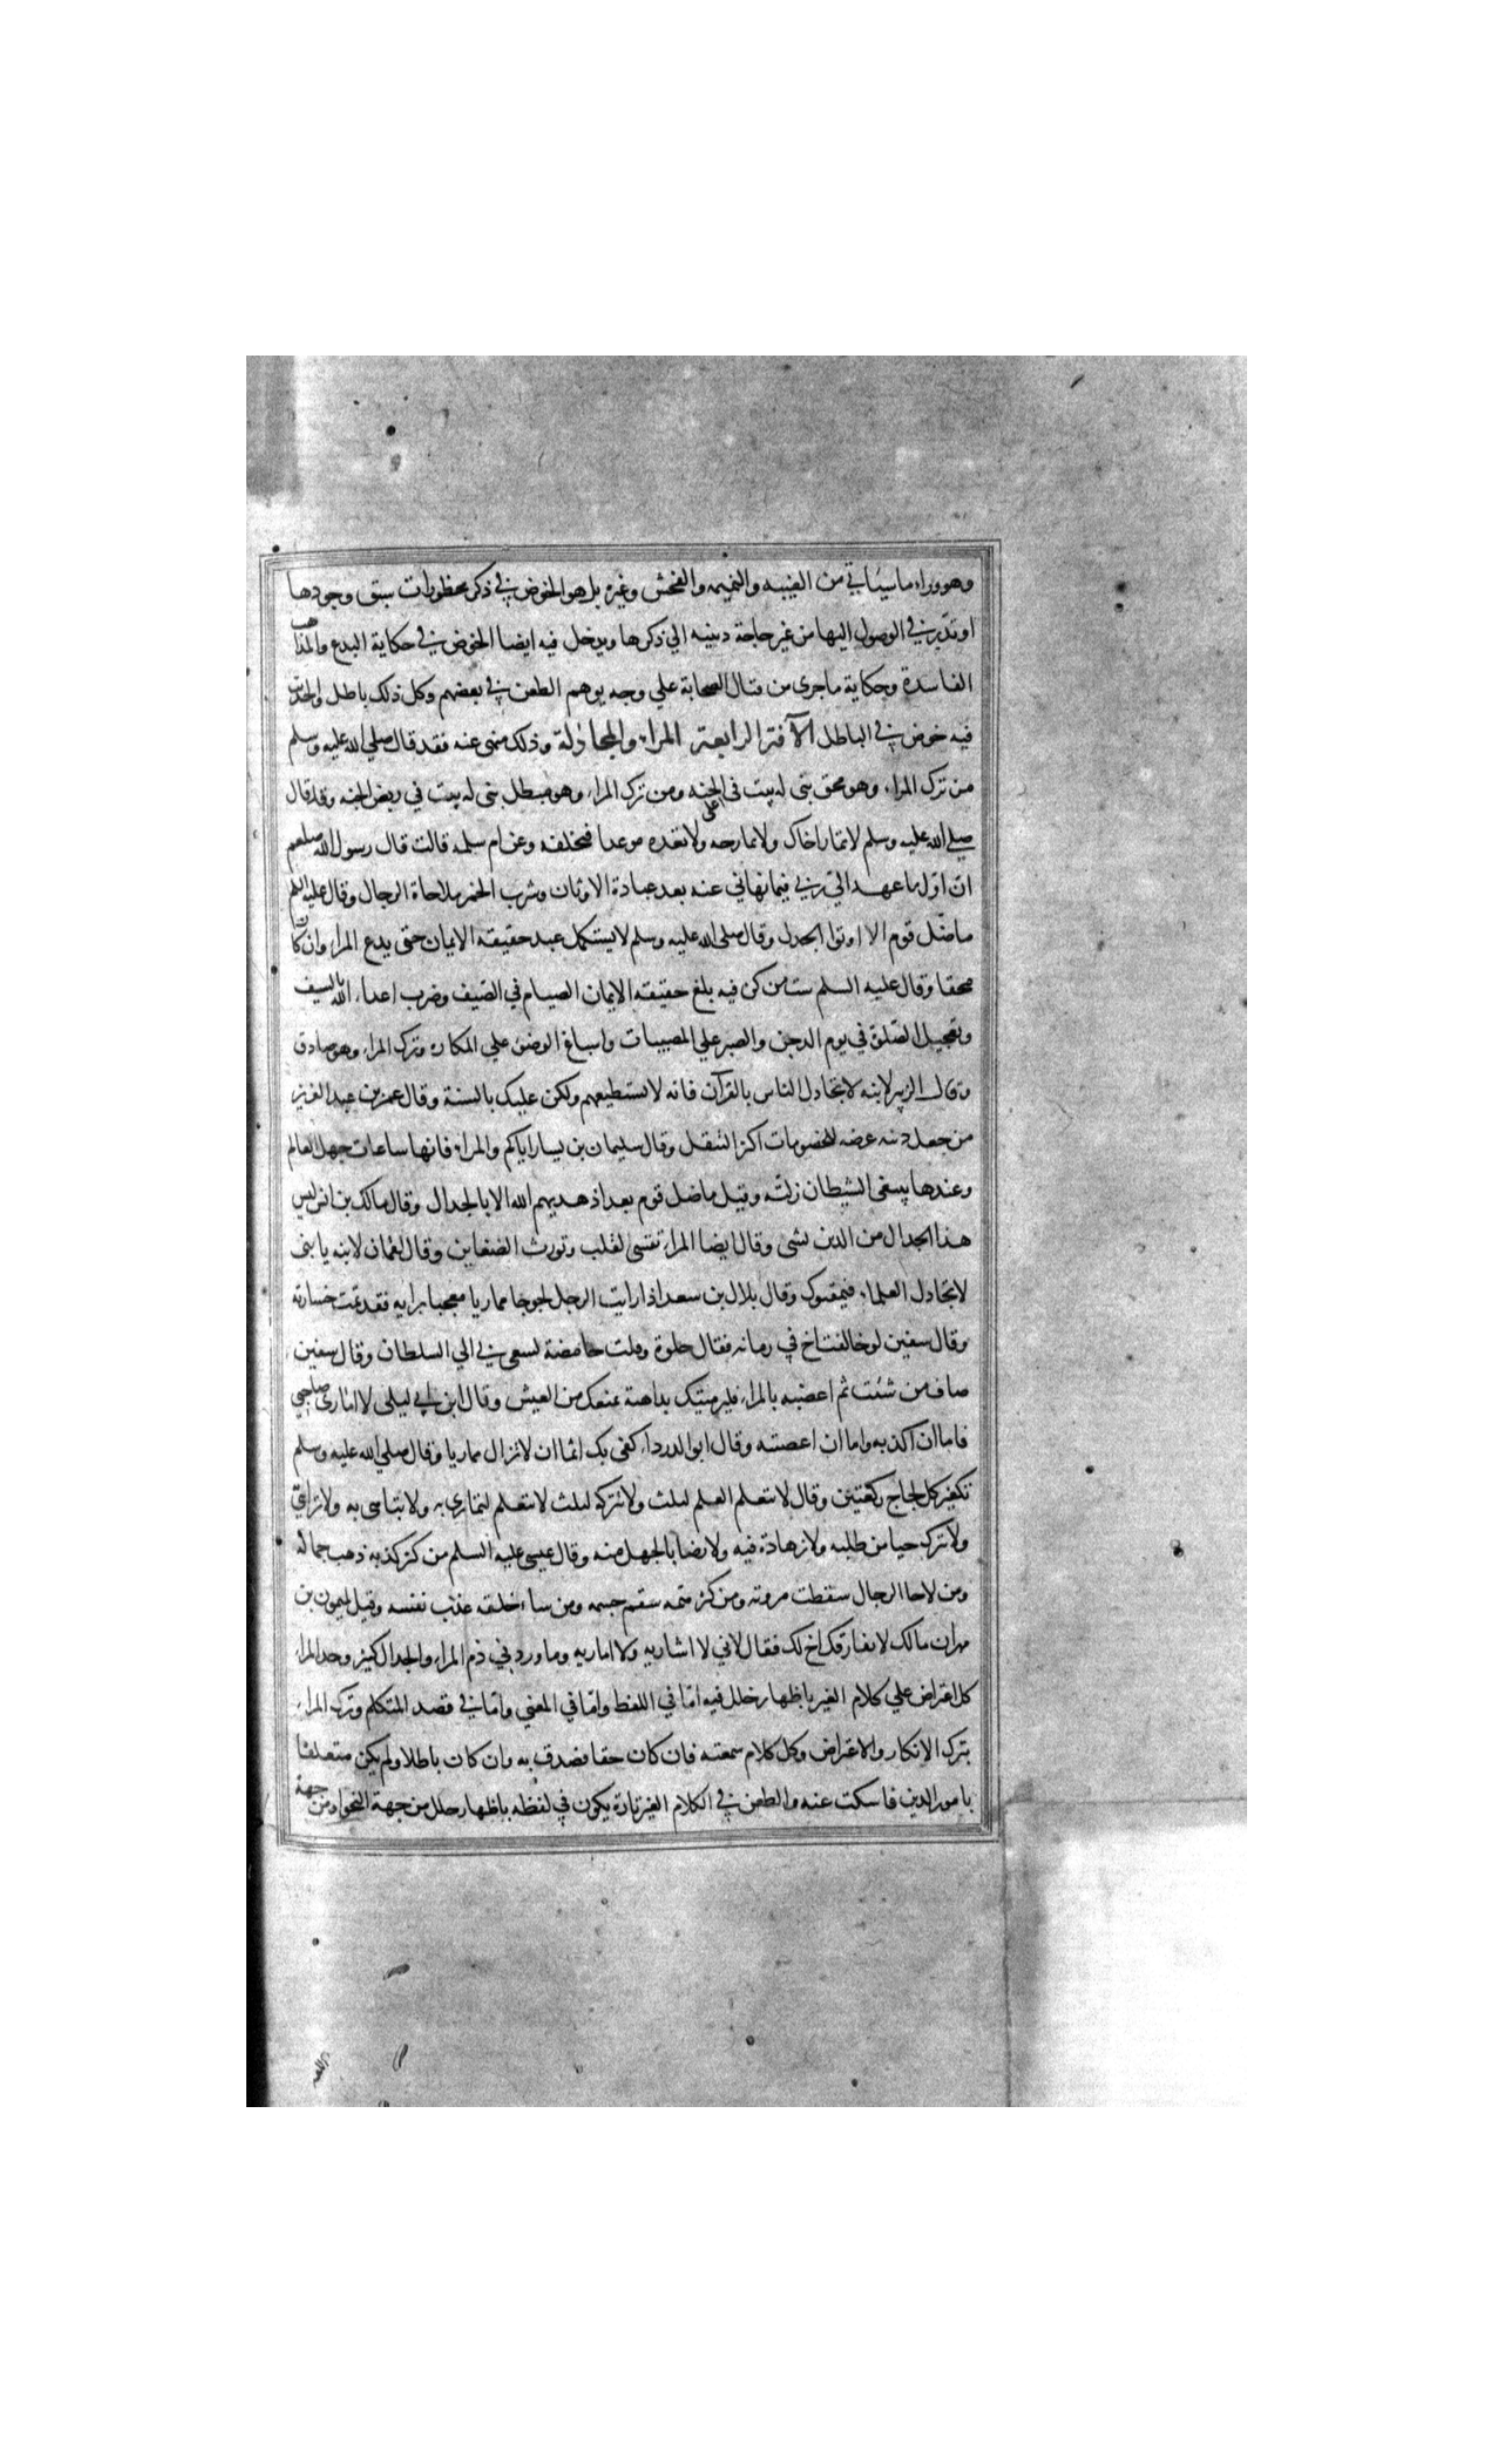 وهو وراء ما سيأتي من الغيبه والنميمه والفحش وغيره بل هو الخوض في ذكر محظورات سبق وجودها
او تدبر في الوصول اليها من غير حاجة دينيه الي ذكرها ويدخل فيه ايضا الخوض في حكاية البدع والمذاهب
الفاسدة وحكاية ما جرى من قتال الصحابة علي وجه يوهم الطعن في بعضهم وكل ذلك باطل والخوض
فيه خوض في الباطل الآفة الرابعة المراء والمجادلة وذلك منهى عنه فقد قال صلي الله عليه وسلم
من ترك المراء وهو محق بنى له بيت فى اعلى الجنه ومن ترك المراء وهو مبطل بنى له بيت في ربض الجنه وقد قال
صلي الله عليه وسلم لا تمار اخاك ولا تمازحه ولا تعده موعدا فتخلفه وعن ام سلمه قالت قال رسول الله صلعم
ان اول ما عهد الي ربي فيما نهاني عنه بعد عبادة الاوثان وشرب الخمر ملاحاة الرجال وقال عليه السلم
ما ضل قوم الا اوتوا الجدل وقال صلى الله عليه وسلم لا يستكمل عبد حقيقة الايمان حتى يدع المراء وان كان
محقا وقال عليه السلم ست من كن فيه بلغ حقيقه الايمان الصيام في الصيف وضرب اعداء الله بالسيف
وتعجيل الصلوة في يوم الدجن والصبر علي المصيبات واسباغ الوضوء علي المكاره وترك المراء وهو صادق
وقال الزبير لابنه لا تجادل الناس بالقرآن فانه لا تستطيعهم ولكن عليك بالسنة وقال عمر بن عبد العزيز
من جعل دينه عرضه للخصومات اكثر التنقل وقال سليمان بن يسار اياكم والمراء فانها ساعات جهل العالم
وعندها يبتغى الشيطان زلته وقيل ما ضل قوم بعد اذ هديهم الله الا بالجدال وقال مالك بن انس ليس
هذا الجدال من الدين بشى وقال ايضا المراء تقسى لقلب وتورث الضغاين وقال لقمان لابنه يا بنى
لا تجادل العلماء فيمقتوك وقال بلال بن سعد اذا رايت الرجل لجوجا مماريا معجبا برايه فقد تمت خسارته
وقال سفين لو خالفت اخ في رمانه فقال حلوة وقلت حامضة لسعى بي الي السلطان وقال سفين
صاف من شئت ثم اغضبه بالمراء فليرمينك بداهية تمنعك من العيش وقال ابن ابي ليلى لا امارى صاحبي
فاما ان اكذبه واما ان اغضبه وقال ابو الدرداء كفى بك اثما ان لا تزال مماريا وقال صلي الله عليه وسلم
تكفير كل لجاج ركعتين وقال لا تتعلم العلم لثلث ولا تتركه لثلث لا تتعلم لتمارى به ولا تتباهى به ولا تراءي
ولا تترك حيا من طلبه ولا زهادة فيه ولا رضا بالجهل منه وقال عيسى عليه السلم من كثر كذبه ذهب جماله
ومن لاحا الرجال سقطت مروته ومن كثر همه سقم جسمه ومن ساء خلقه عذب نفسه وقيل لميمون بن
مهران مالك لا يفارقك اخ لك فقال لاني لا اشاريه ولا اماريه وما ورد في ذم المراء والجدال كثير وحد المراء
كل اعتراض علي كلام الغير باظهار خلل فيه اما في اللفظ واما في المعني واما في قصد المتكلم وترك المراء
بترك الانكار والاعتراض وكل كلام سمعته فان كان حقا فصدق به وان كان باطلا ولم يكن متعلقا
بامور الدين فاسكت عنه والطعن في الكلام الغير تارة يكون في لفظه باظهار خلل من جهة النحو او من جهة
اللغه